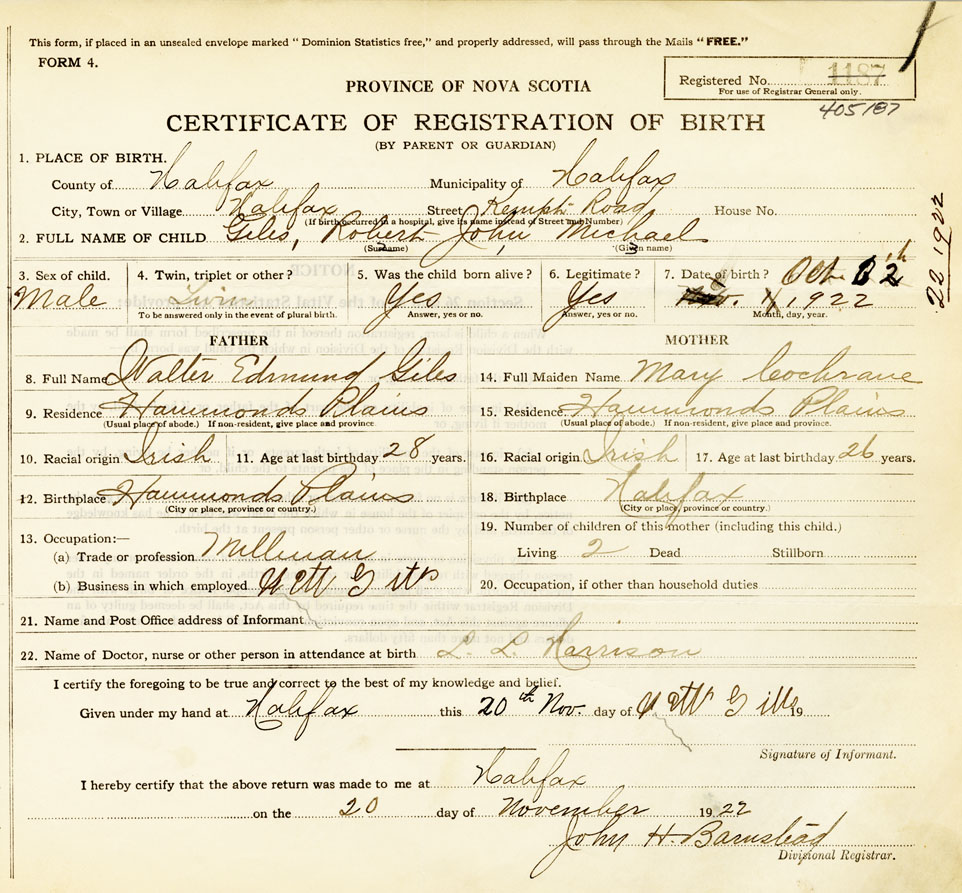 This form, if placed in an unsealed envelope marked "Dominion Statistics free," and properly addressed, will pass through the Mails "FREE."
FORM 4.
Registered No. 1187
For use of Registrar General only.
405187
PROVINCE OF NOVA SCOTIA
CERTIFICATE OF REGISTRATION OF BIRTH
(BY PARENT OR GUARDIAN)
1. PLACE OF BIRTH.
County of Halifax Municipality of Halifax
City, Town or Village Halifax Street Kempt Road House No.
(If birth occurred in a hospital, give its name instead of Street and Number)
2. FULL NAME OF CHILD Giles, Robert John Michael
(Surname) (Given name)
3. Sex of child. 4. Twin, triplet or other? 5. Was the child born alive? 6. Legitimate? 7. Date of birth? Oct.
Male Twin Yes Yes 1922
To be answered only in the event of plural birth. Answer, yes or no. Answer, yes or no. Month, day, year.
22 1922
FATHER MOTHER
8. Full Name Walter Edmund Giles 14. Full Maiden Name Mary Cochrane
9. Residence Hammonds Plains 15. Residence Hammonds Plains
(Usual place of abode.) If non-resident, give place and province. (Usual place of abode.) If non-resident, give place and province.
10. Racial origin Irish 11. Age at last birthday 28 years. 16. Racial origin Irish 17. Age at last birthday 26 years.
12. Birthplace Hammonds Plains 18. Birthplace Halifax
(City or place, province or country.) (City or place, province or country.)
19. Number of children of this mother (including this child.)
13. Occupation:—
(a) Trade or profession Millman Living 2 Dead Stillborn
(b) Business in which employed 20. Occupation, if other than household duties
21. Name and Post Office address of Informant
22. Name of Doctor, nurse or other person in attendance at birth L. L. Harrison
I certify the foregoing to be true and correct to the best of my knowledge and belief.
Given under my hand at Halifax this 20th Nov. day of 19
Signature of Informant.
I hereby certify that the above return was made to me at Halifax
on the 20 day of November 1922
John H. Barnstead
Divisional Registrar.